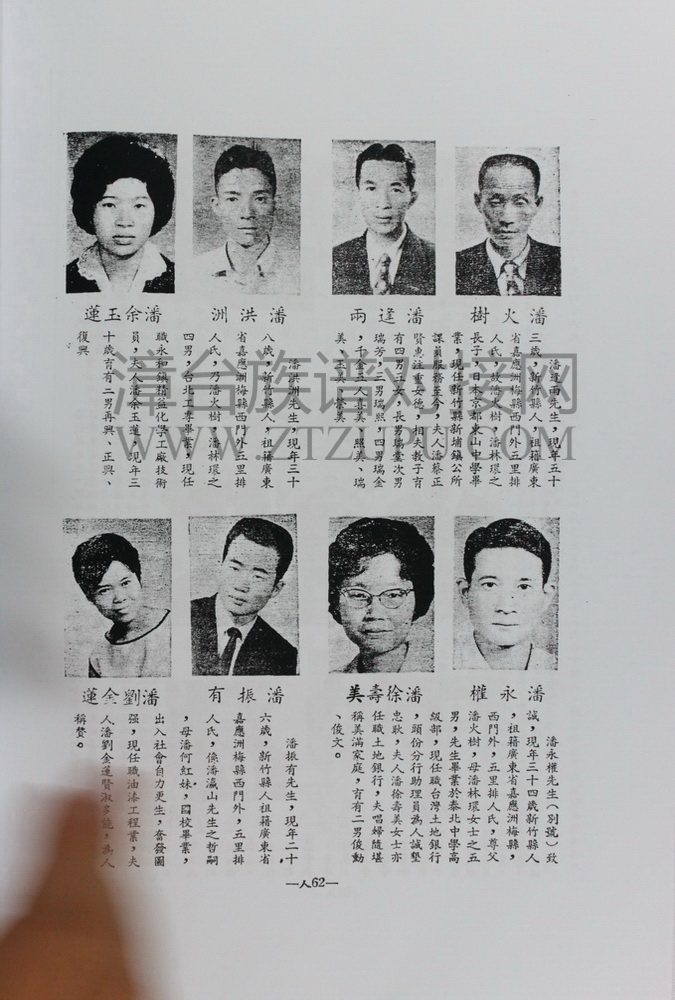 潘火樹
潘逢雨
潘洪洲
潘余玉蓮
潘逢雨先生，現年五十
三歲，新竹縣人，祖籍廣東
省嘉應洲梅縣西門外五里排
人氏，故潘火樹，潘林環之
長子，日本京都東山中學畢
業，現任新竹縣新埔鎮公所
課員服務至今，夫人潘蔡正
賢惠注重女德，相夫教子育
有四男五女，長男瑞堂次男
瑞芳，三男瑞熙，四男瑞金
，千金五人喜美、照美、瑞
美、玉美、榮美
潘洪洲先生，現年三十
八歲，新竹縣人，祖籍廣東
省嘉應洲梅縣西門外五里排
人氏，乃潘火樹，潘林環之
四男，台北工專畢業，現任
職永和鎮精益化學工廠技術
員，夫人潘余玉蓮，現年三
十歲育有二男再興、正興、
復興
潘永權
潘徐壽美
潘振有
潘劉金蓮
潘永權先生（別號）致
誠，現年三十四歲新竹縣人
，祖籍廣東省嘉應洲梅縣，
西門外，五里排人氏，尊父
潘火樹，母潘林環女士之五
男，先生畢業於泰北中學高
級部，現任職台灣土地銀行
，頭份分行助理員為人誠墾
忠耿，夫人潘徐壽美女士亦
任職土地銀行，夫唱婦隨堪
稱美滿家庭，育有二男俊勳
、俊文。
潘振有先生，現年二十
六歲，新竹縣人祖籍廣東省，
嘉應洲梅縣西門外，五里排
人氏，係潘瀛山先生之哲嗣
，母潘何紅妹，國校畢業，
出入社會自力更生，奮發圖
强，現任職油漆工程業，夫
人潘劉金蓮賢淑能，為人
稱贊。
—人62—
漳台族谱对接网
WWW.ZTZUPU.COM